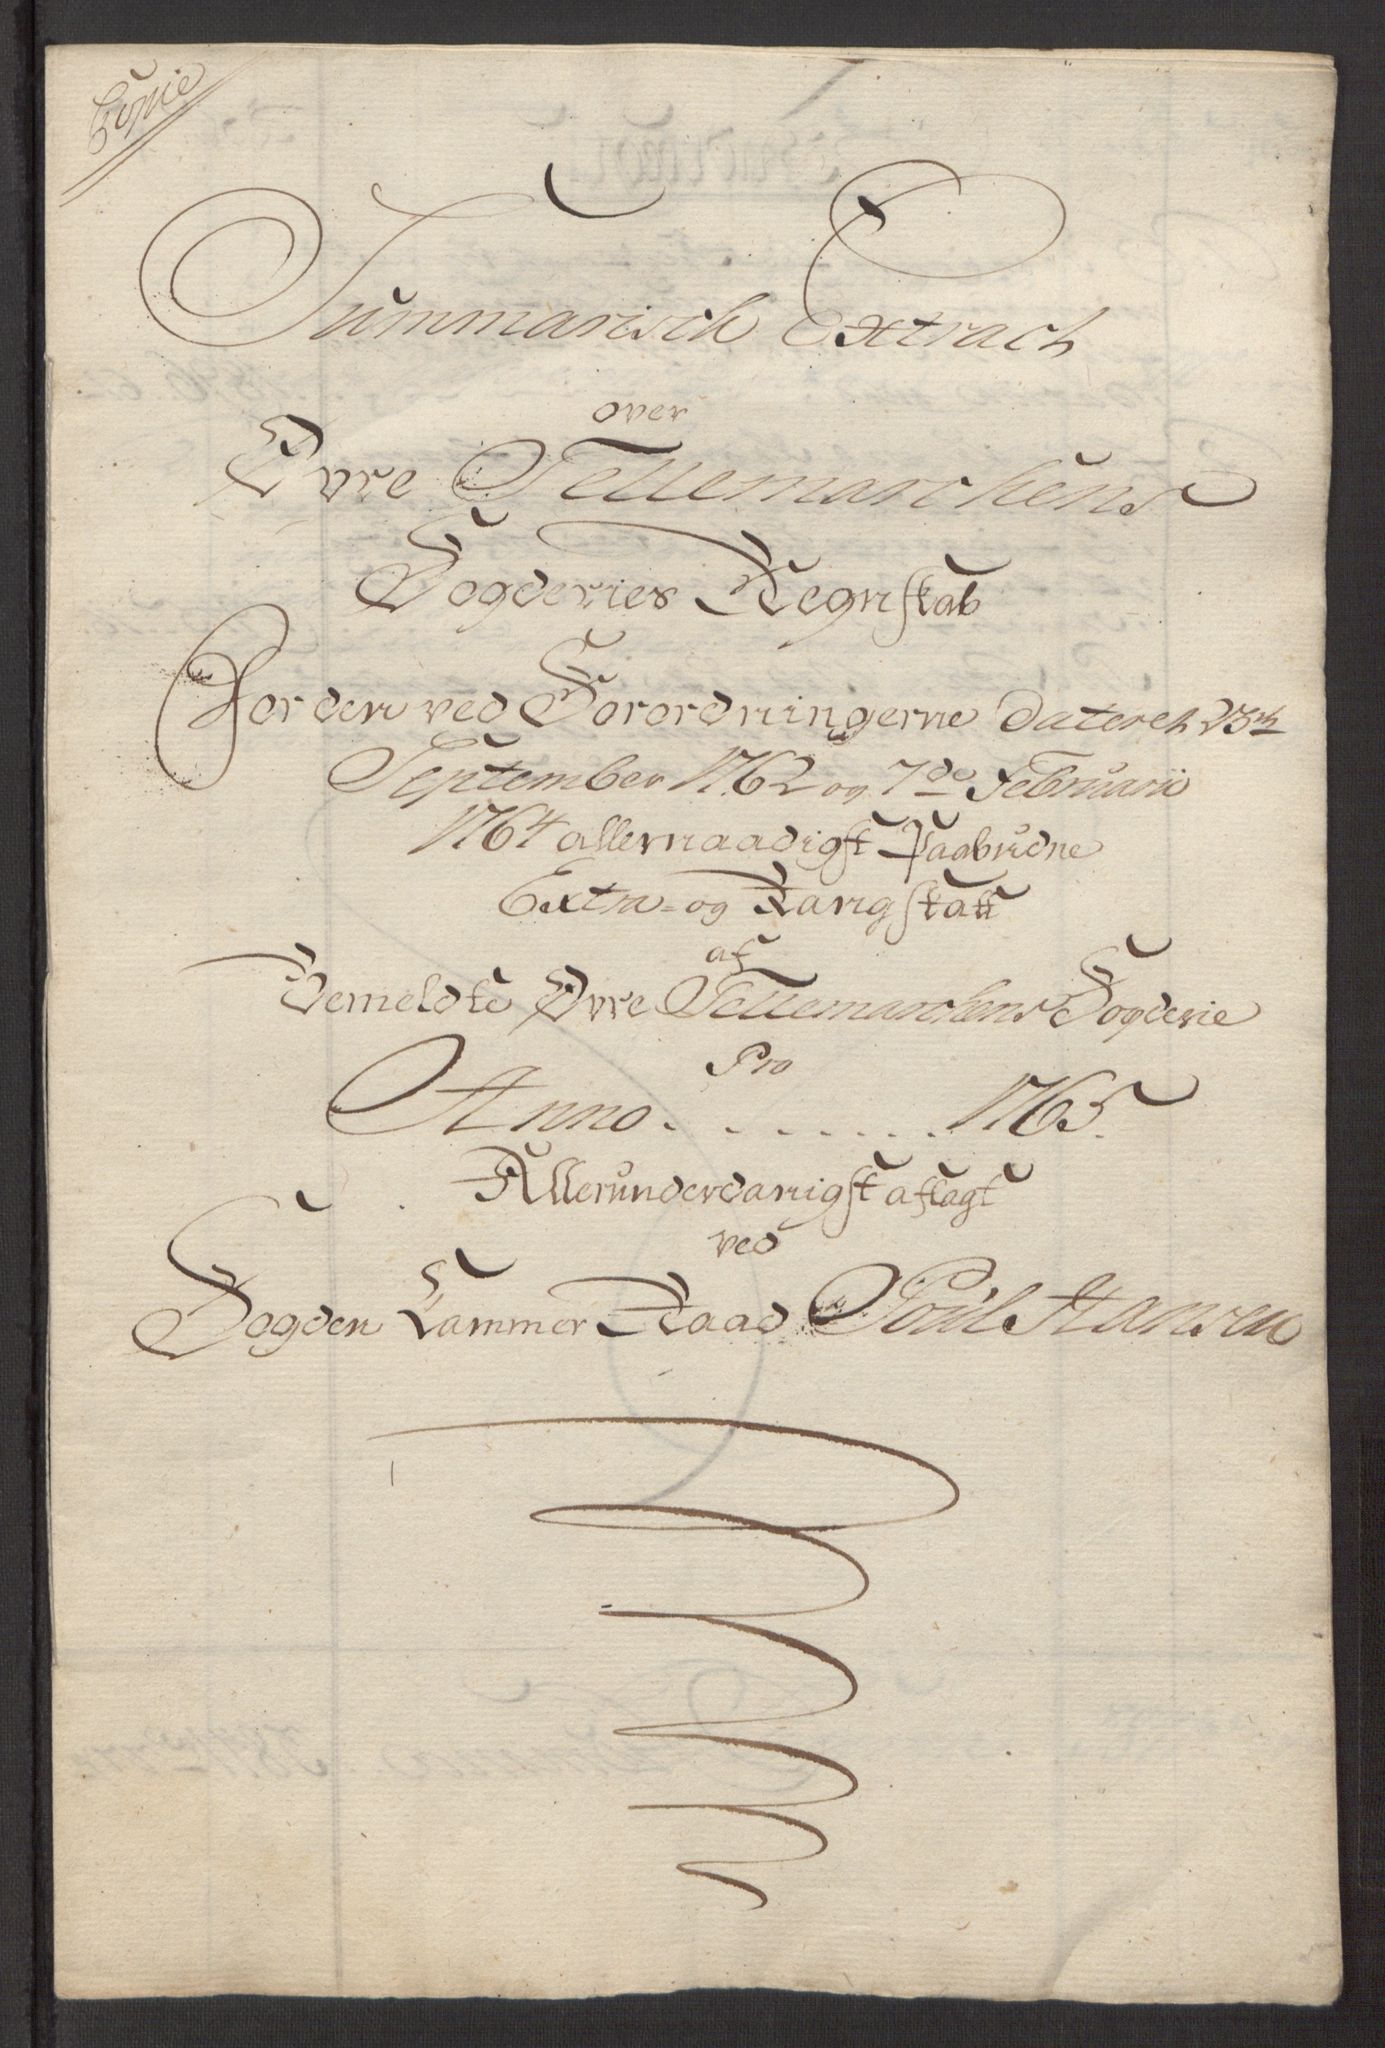 Copie
Summarisch Extrach
over
Øvre Tellemarchens
Fogderies Regnskab
For den ved Forordningerne dateret 23de
September 1762 og 7de Februarii
1764 allernaadigst Paabudne
Extra- og Rangskatt
af
Bemeldte Øvre Tellemarchens Fogderie
Pro
Anno . . . . . . . . . 1765.
Allerunderdanigst aflagt
ved
Fogden Kammer Raad Poul Hansen